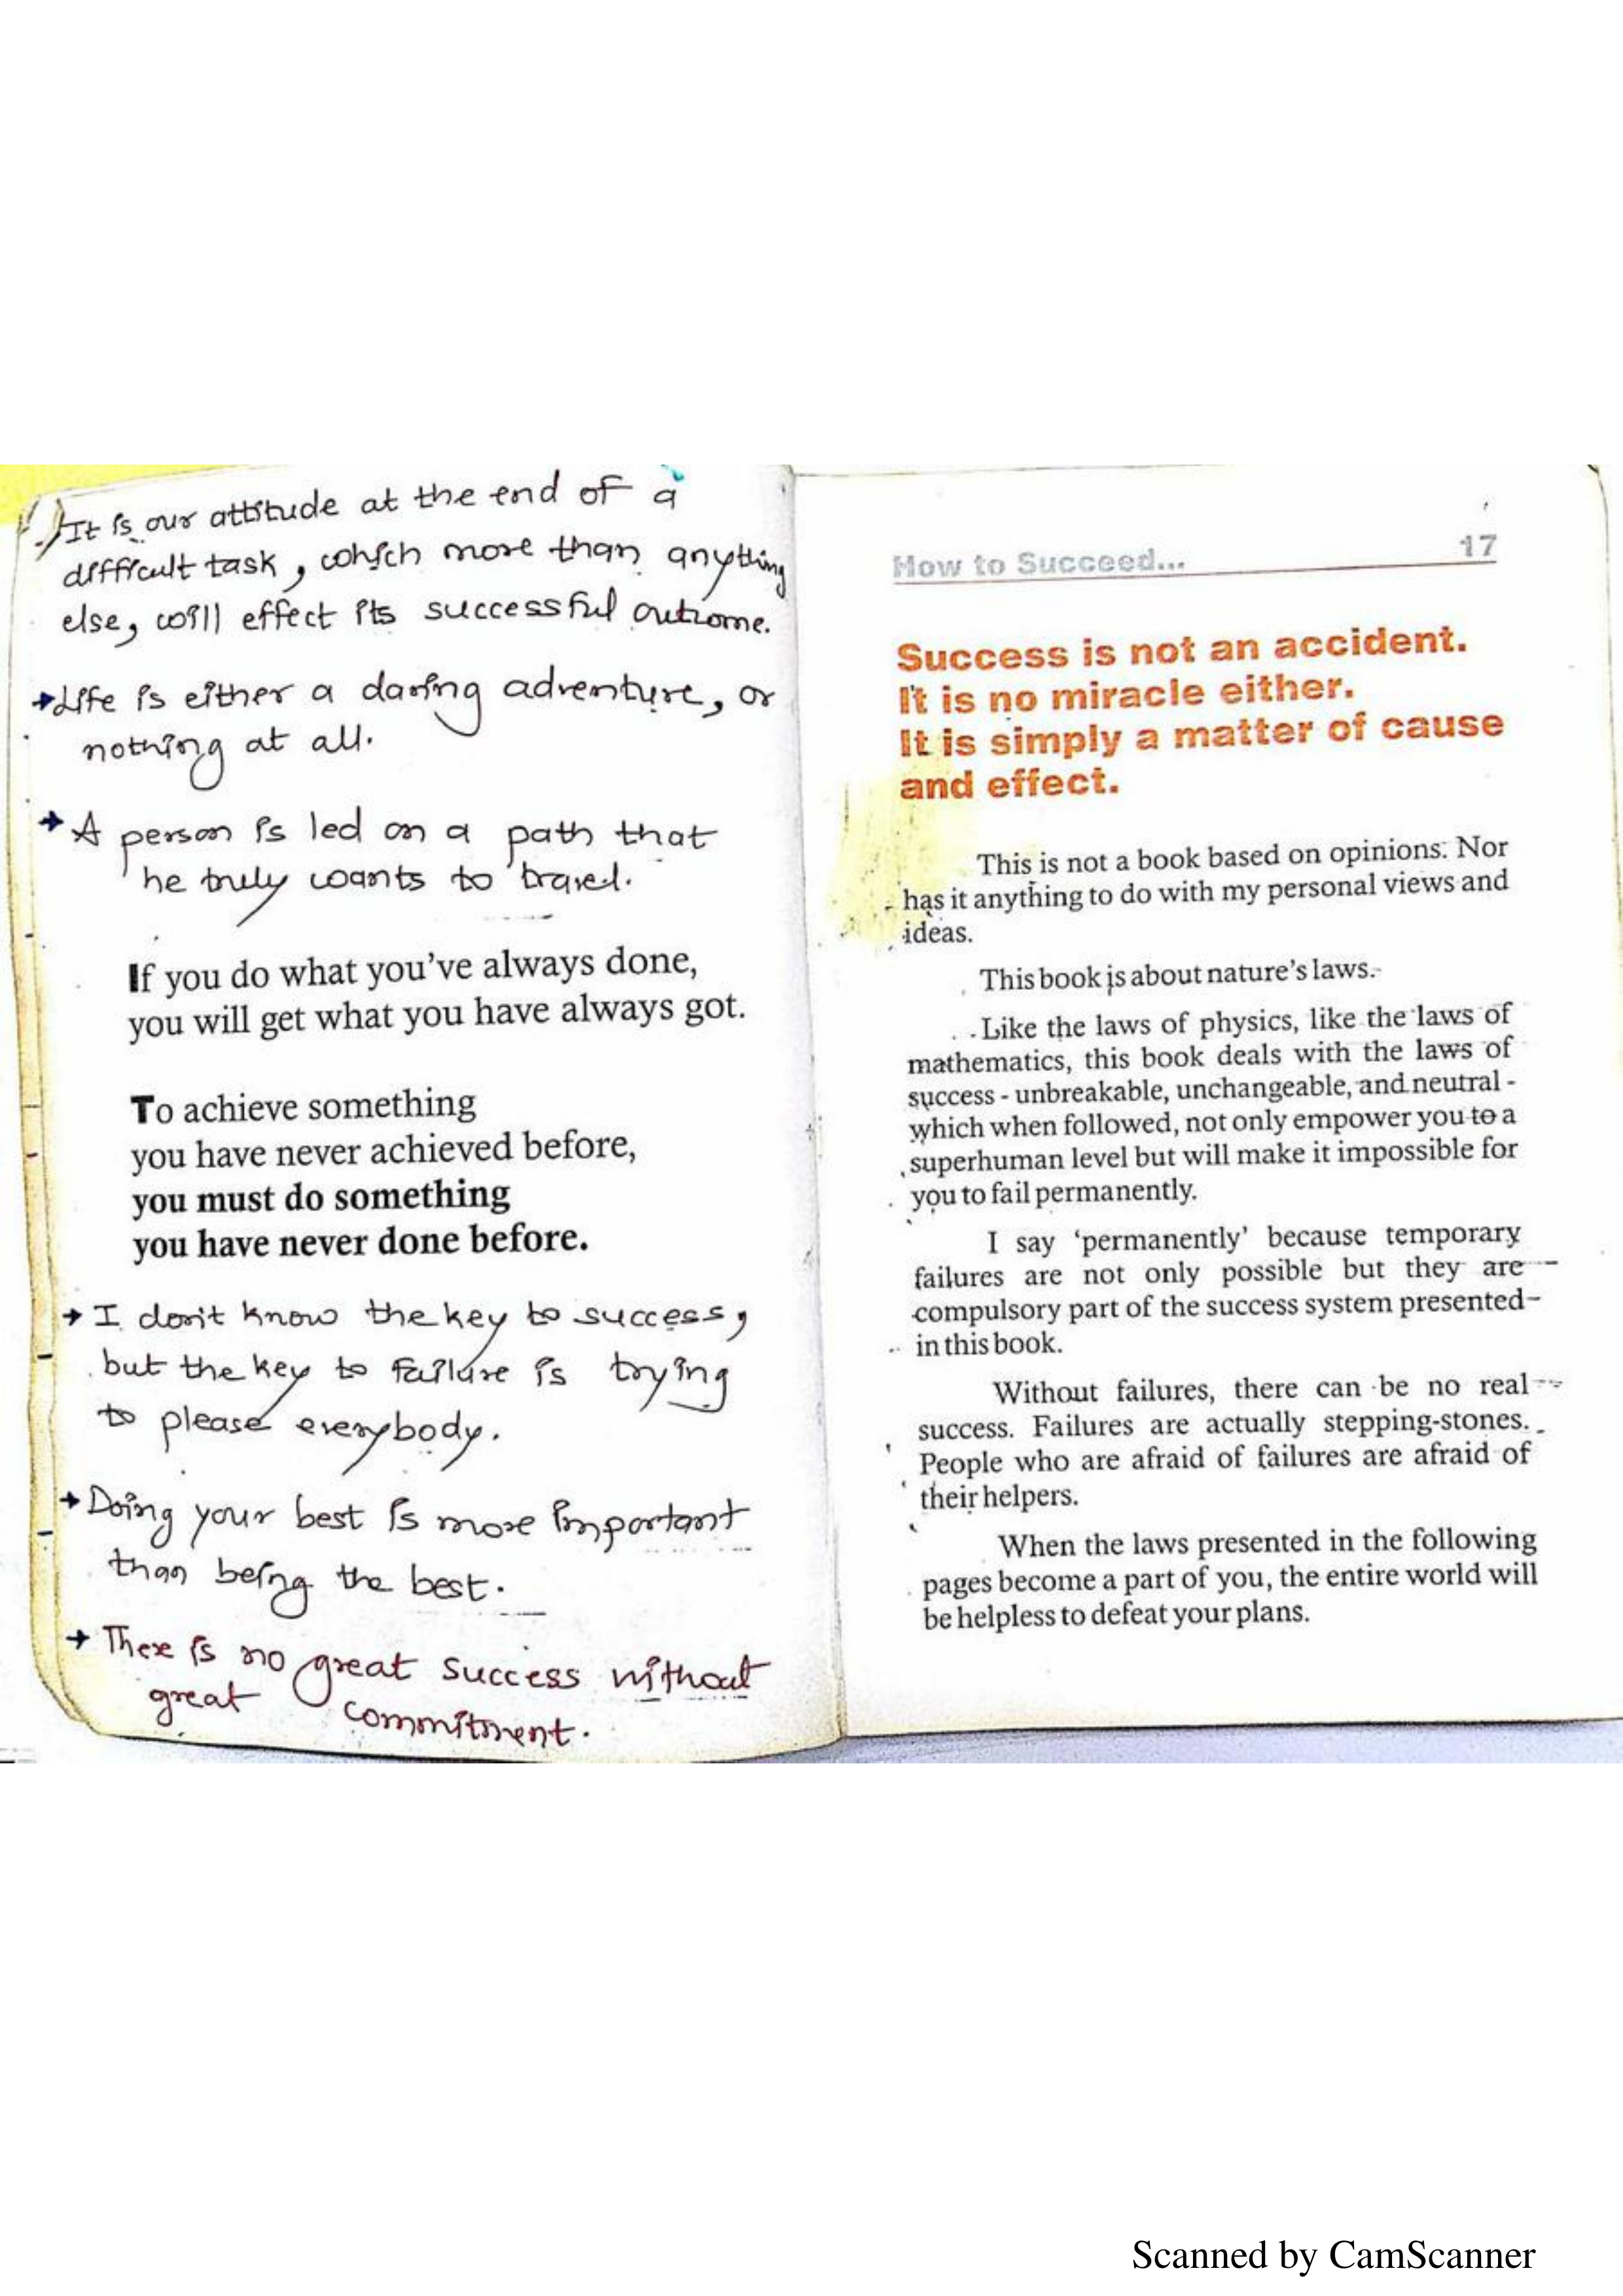 It is our attitude at the end of a
difficult task, which more than anything
else, will effect its successful outcome.
→Life is either a daring adventure, or
nothing at all.
→ A person is led on a path that
he truly wants to travel.
If you do what you've always done,
you will get what you have always got.
To achieve something
you have never achieved before,
you must do something
you have never done before.
→ I don't know the key to success,
but the key to failure is trying
to please everybody.
→ Doing your best is more important
than being the best.
→ There is no great success without
great commitment.
How to Succeed... 17
Success is not an accident.
It is no miracle either.
It is simply a matter of cause
and effect.
This is not a book based on opinions. Nor
has it anything to do with my personal views and
ideas.
This book is about nature's laws.
Like the laws of physics, like the laws of
mathematics, this book deals with the laws of
success - unbreakable, unchangeable, and neutral -
which when followed, not only empower you to a
superhuman level but will make it impossible for
you to fail permanently.
I say 'permanently' because temporary
failures are not only possible but they are
compulsory part of the success system presented
in this book.
Without failures, there can be no real
success. Failures are actually stepping-stones.
People who are afraid of failures are afraid of
their helpers.
When the laws presented in the following
pages become a part of you, the entire world will
be helpless to defeat your plans.
Scanned by CamScanner